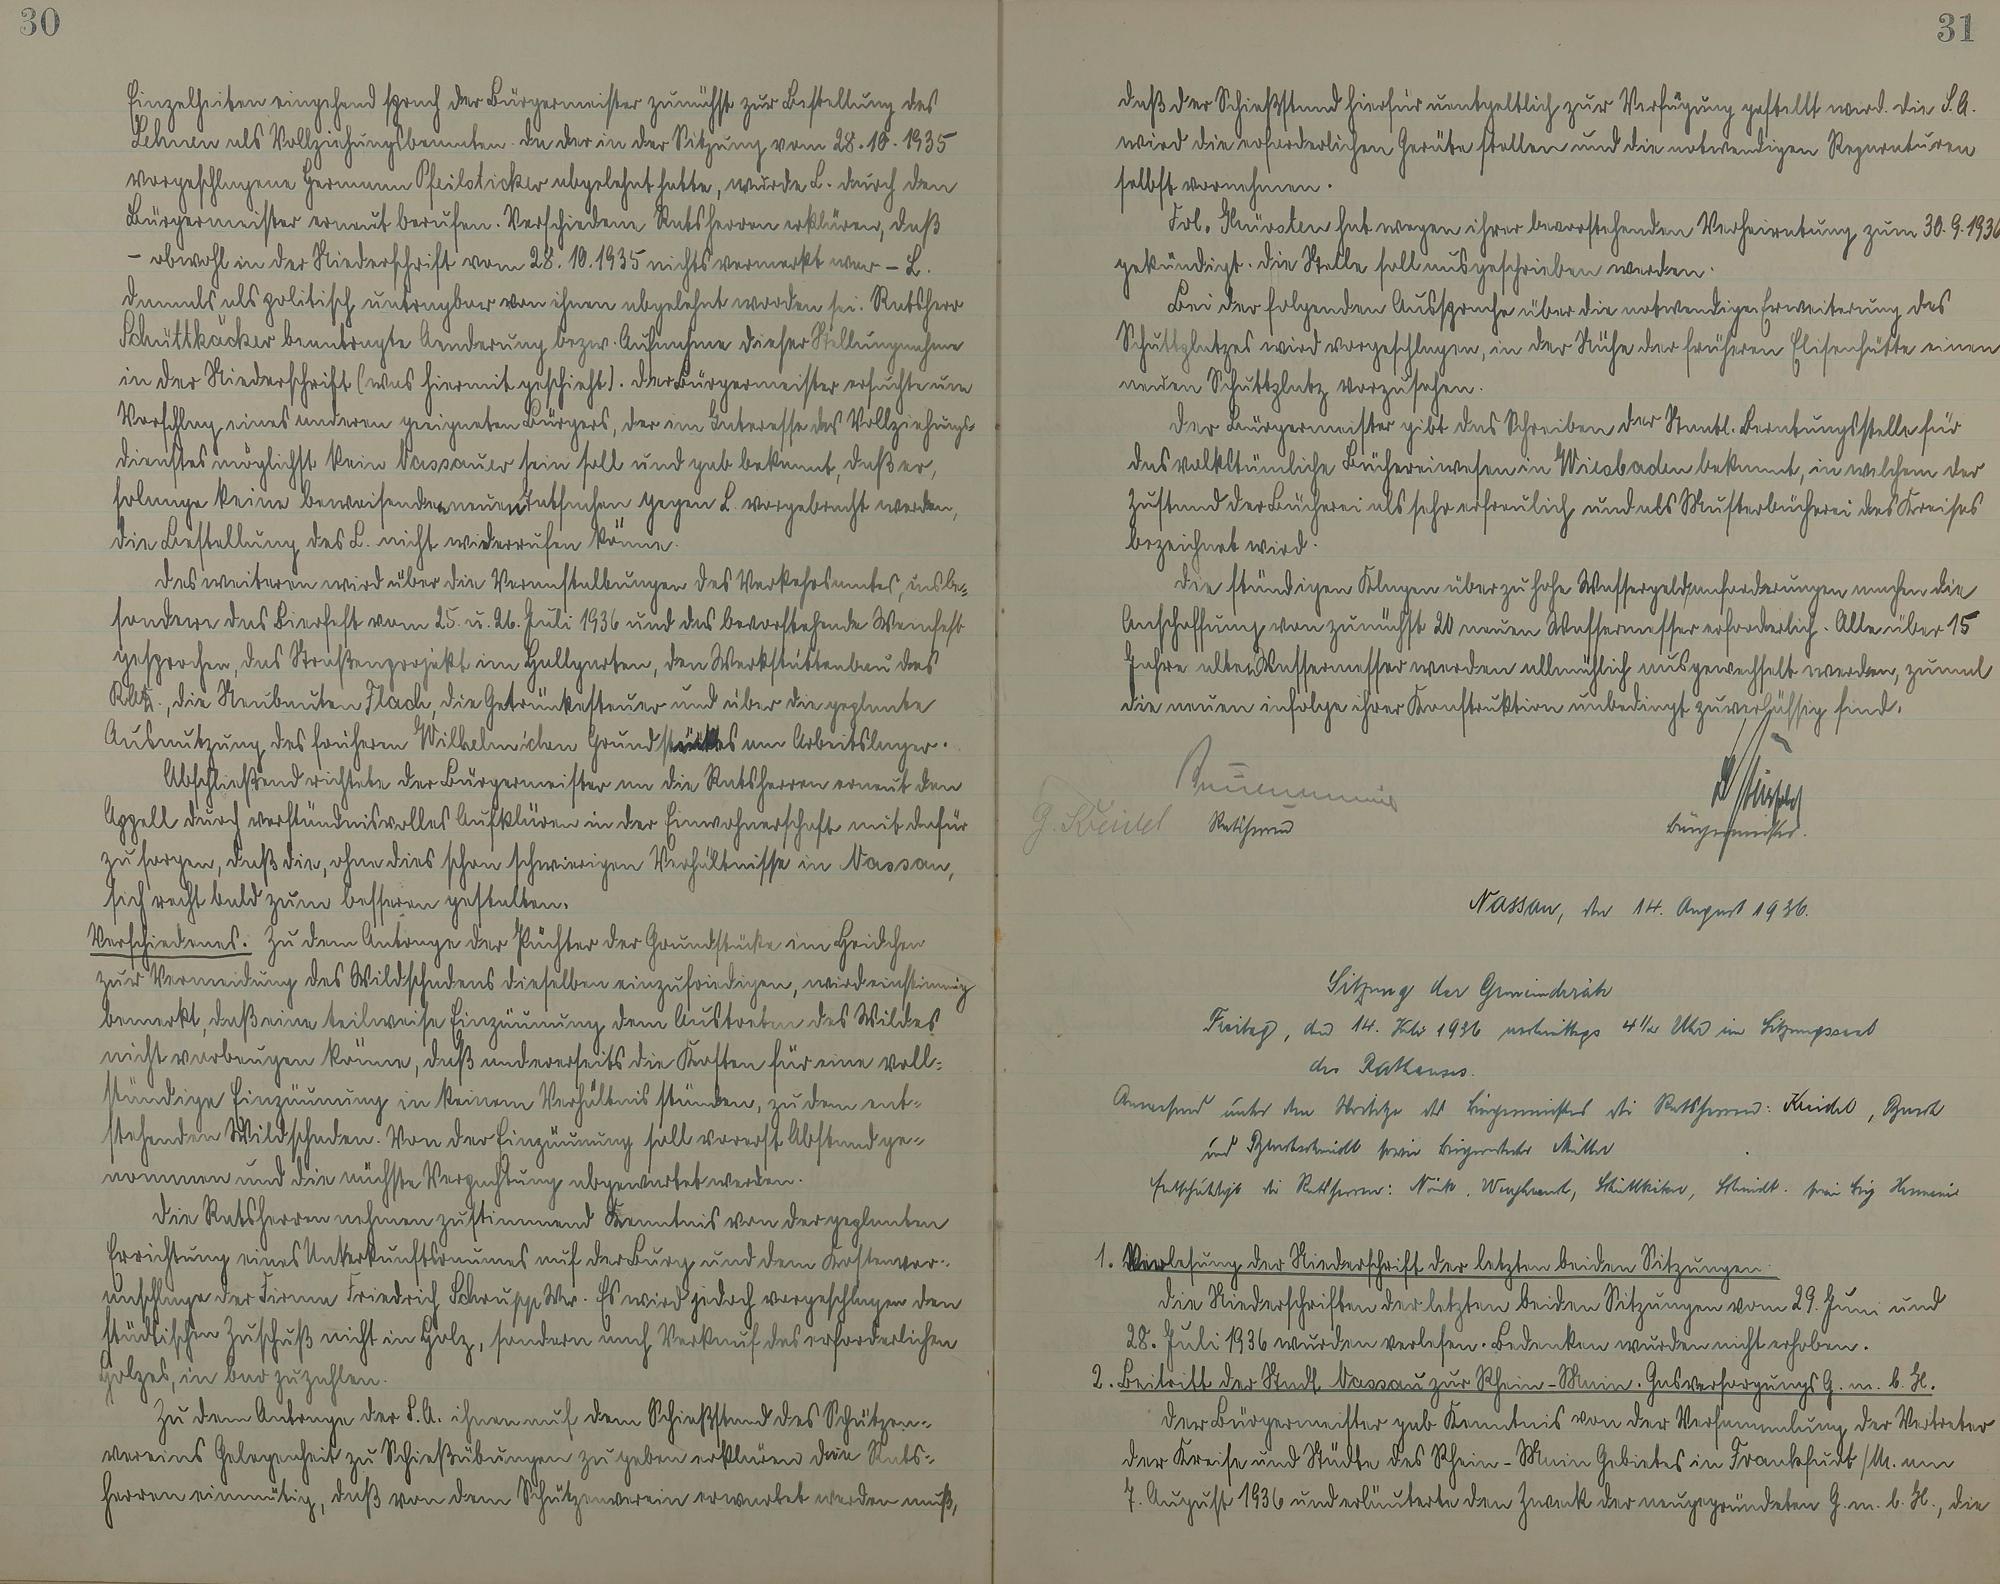 30
Einzelheiten eingehend sprach der Bürgermeister zunächst zur Bestellung des
Lehnen als Vollziehungsbeamten. Da der in der Sitzung vom 28.10.1935
vorgeschlagene Hermann Pfeilsticker abgelehnt hatte, wurde L. durch den
Bürgermeister erneut berufen. Verschiedene Ratsherren erklären, daß
– obwohl in der Niederschrift vom 28.10.1935 nichts vermerkt war – L.
damals als politisch untragbar von ihnen abgelehnt worden sei. Ratsherr
Schüttkäcker beantragte Aenderung bezw. Aufnahme dieser Stellungnahme
in der Niederschrift (was hiermit geschieht). Der Bürgermeister ersuchte um
Vorschlag eines anderen geeigneten Bürgers, der im Interesse des Vollziehungs-
dienstes möglichst kein Nassauer sein soll und gab bekannt, daß er,
solange keine beweisenden neuen Tatsachen gegen L. vorgebracht werden,
die Bestellung des L. nicht wiederrufen könne.
Des weiteren wird über die Veranstaltungen des Verkehrsamtes, insbe-
sondere das Bierfest vom 25. u. 26. Juli 1936 und das bevorstehende Weinfest
gesprochen, das Straßenprojekt im Hallgarten, den Werkstättenbau des
, die Neubauten Flach, die Getränkesteuer und über die geplante
Ausnutzung des früheren Wilhelmi'chen Grundstückes am Arbeitslager.
Abschließend richtete der Bürgermeister an die Ratsherren erneut den
Appell durch verständnisvolles Aufklären in der Einwohnerschaft mit dafür
zu sorgen, daß die, ohne dies schon schwierigen Verhältnisse in Nassau,
sich recht bald zum besseren gestalten.
Verschiedenes. Zu dem Antrage der Pächter der Grundstücke im Heidchen
zur Vermeidung des Wildschadens dieselben einzufriedigen, wird einstimmig
bemerkt, daß eine teilweise Einzäunung dem Austreten des Wildes
nicht vorbeugen könne, daß andererseits die Kosten für eine voll-
ständige Einzäunung in keinem Verhältnis ständen, zu dem ent-
stehenden Wildschaden. Von der Einzäunung soll vorerst Abstand ge-
nommen und die nächste Verpachtung abgewartet werden.
Die Ratsherren nehmen zustimmend Kenntnis von der geplanten
Errichtung eines Unterkunftsraumes auf der Burg und dem Kostenvor-
anschlage der Firma Friedrich Schrupp Ww. Es wird jedoch vorgeschlagen den
städtischen Zuschuß nicht in Holz, sondern nach Verkauf des erforderlichen
Holzes, in bar zu zahlen.
Zu dem Antrage der S.A. ihnen auf dem Schießstand des Schützen-
vereins Gelegenheit zu Schießübungen zu geben erklären die Rats-
herren einmütig, daß von dem Schützenverein erwartet werden muß,
31
daß der Schießstand hierfür unentgeltlich zur Verfügung gestellt wird. Die S.A.
wird die erforderlichen Geräte stellen und die notwendigen Reparaturen
selbst vornehmen.
Frl. hat wegen ihrer bevorstehenden Verheiratung zum 30.9.1936
gekündigt. Die Stelle soll ausgeschrieben werden.
Bei der folgenden Aussprache über die notwendige Erweiterung des
Schuttplatzes wird vorgeschlagen, in der Nähe der früheren Elisenhütte einen
neuen Schuttplatz vorzusehen.
Der Bürgermeister gibt das Schreiben der Staatl. Beratungsstelle für
das volkstümliche Büchereiwesen in Wiesbaden bekannt, in welchem der
Zustand der Bücherei als sehr erfreulich und als Musterbücherei des Kreises
bezeichnet wird.
Die ständigen Klagen über zu hohe Wassergeldanforderungen machen die
Anschaffung von zunächst 20 neuen Wassermesser erforderlich. Alle über 15
Jahre alten Wassermesser werden allmählich ausgewechselt werden, zumal
die neuen infolge ihrer Konstruktion unbedingt zuverlässig sind.
G. Kreidel Ratsherren
Bürgermeister.
Nassau, den 14. August 1936.
Sitzung der Gemeinderäte
Freitag, den 14. 1936 nachmittags 4 1/2 Uhr im Sitzungssaal
des Rathauses.
Anwesend unter dem Vorsitze des Bürgermeisters die Ratsherren: Kreidel,
und sowie Müller
Entschuldigt die Ratsherren: Schüttkäcker, Schmidt. sowie
1. Verlesung der Niederschrift der letzten beiden Sitzungen.
Die Niederschriften der letzten beiden Sitzungen vom 29. Juni und
28. Juli 1936 wurden verlesen. Bedenken wurden nicht erhoben.
2. Beitritt der Stadt Nassau zur Rhein-Main. Gasversorgungs G.m.b.H.
Der Bürgermeister gab Kenntnis von der Versammlung der Vertreter
der Kreise und Städte des Rhein-Main Gebietes in Frankfudt/M. am
7. August 1936 und erläuterte den Zweck der neugegründeten G.m.b.H., die